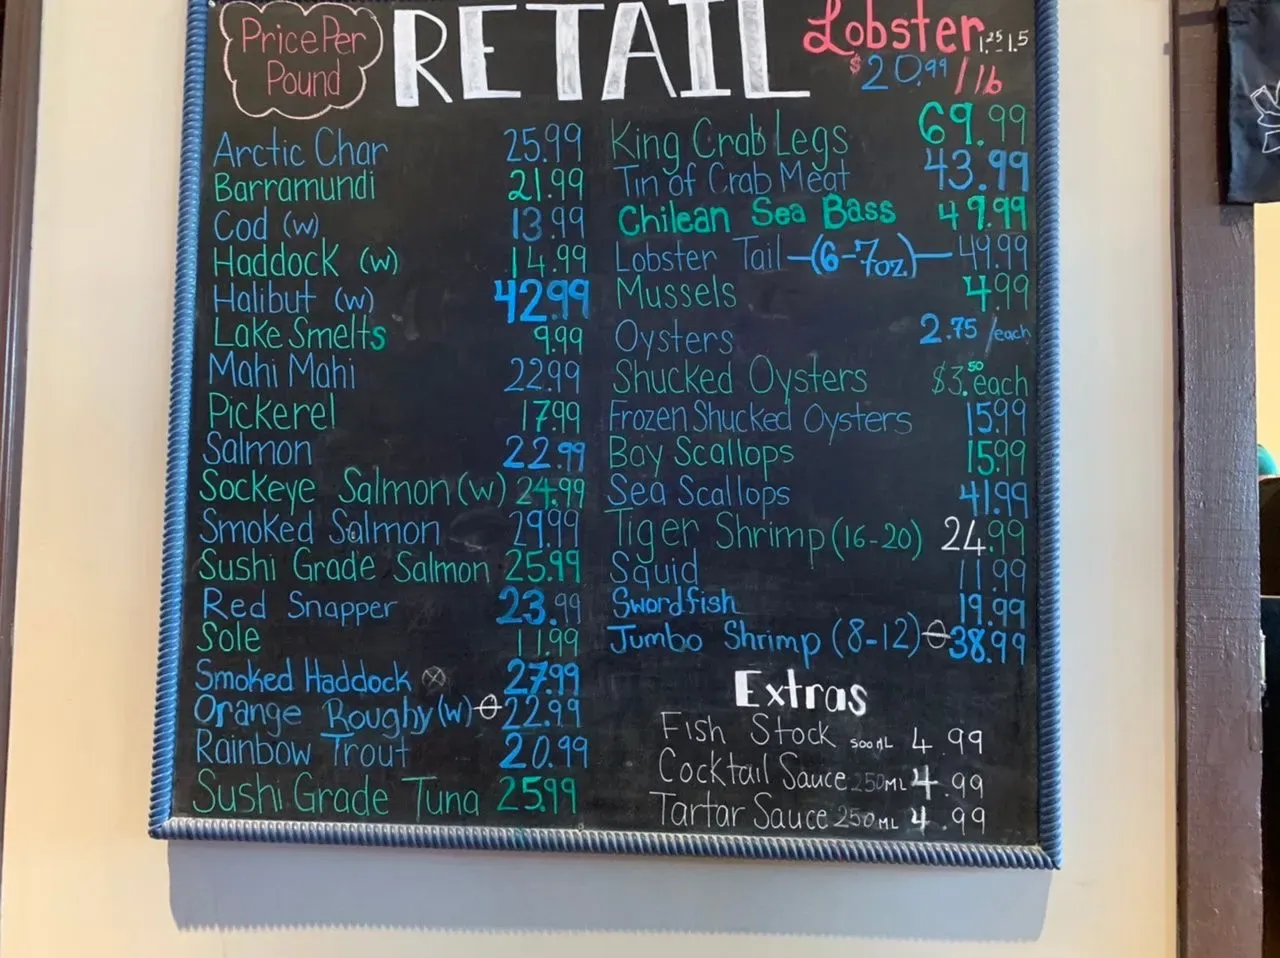 Price Per
Pound
RETAIL
Lobster 1.25-1.5
$20.99/lb
Arctic Char 25.99
Barramundi 21.99
Cod (w) 13.99
Haddock (w) 14.99
Halibut (w) 42.99
Lake Smelts 9.99
Mahi Mahi 22.99
Pickerel 17.99
Salmon 22.99
Sockeye Salmon (w) 24.99
Smoked Salmon 29.99
Sushi Grade Salmon 25.99
Red Snapper 23.99
Sole 11.99
Smoked Haddock 27.99
Orange Roughy (w) 22.99
Rainbow Trout 20.99
Sushi Grade Tuna 25.99
King Crab Legs 69.99
Tin of Crab Meat 43.99
Chilean Sea Bass 49.99
Lobster Tail -(6-7oz.)- 49.99
Mussels 4.99
Oysters 2.75 /each
Shucked Oysters $3.50 each
Frozen Shucked Oysters 15.99
Bay Scallops 15.99
Sea Scallops 41.99
Tiger Shrimp (16-20) 24.99
Squid 11.99
Swordfish 19.99
Jumbo Shrimp (8-12) 38.99
Extras
Fish Stock 500ML 4.99
Cocktail Sauce 250ML 4.99
Tartar Sauce 250ML 4.99